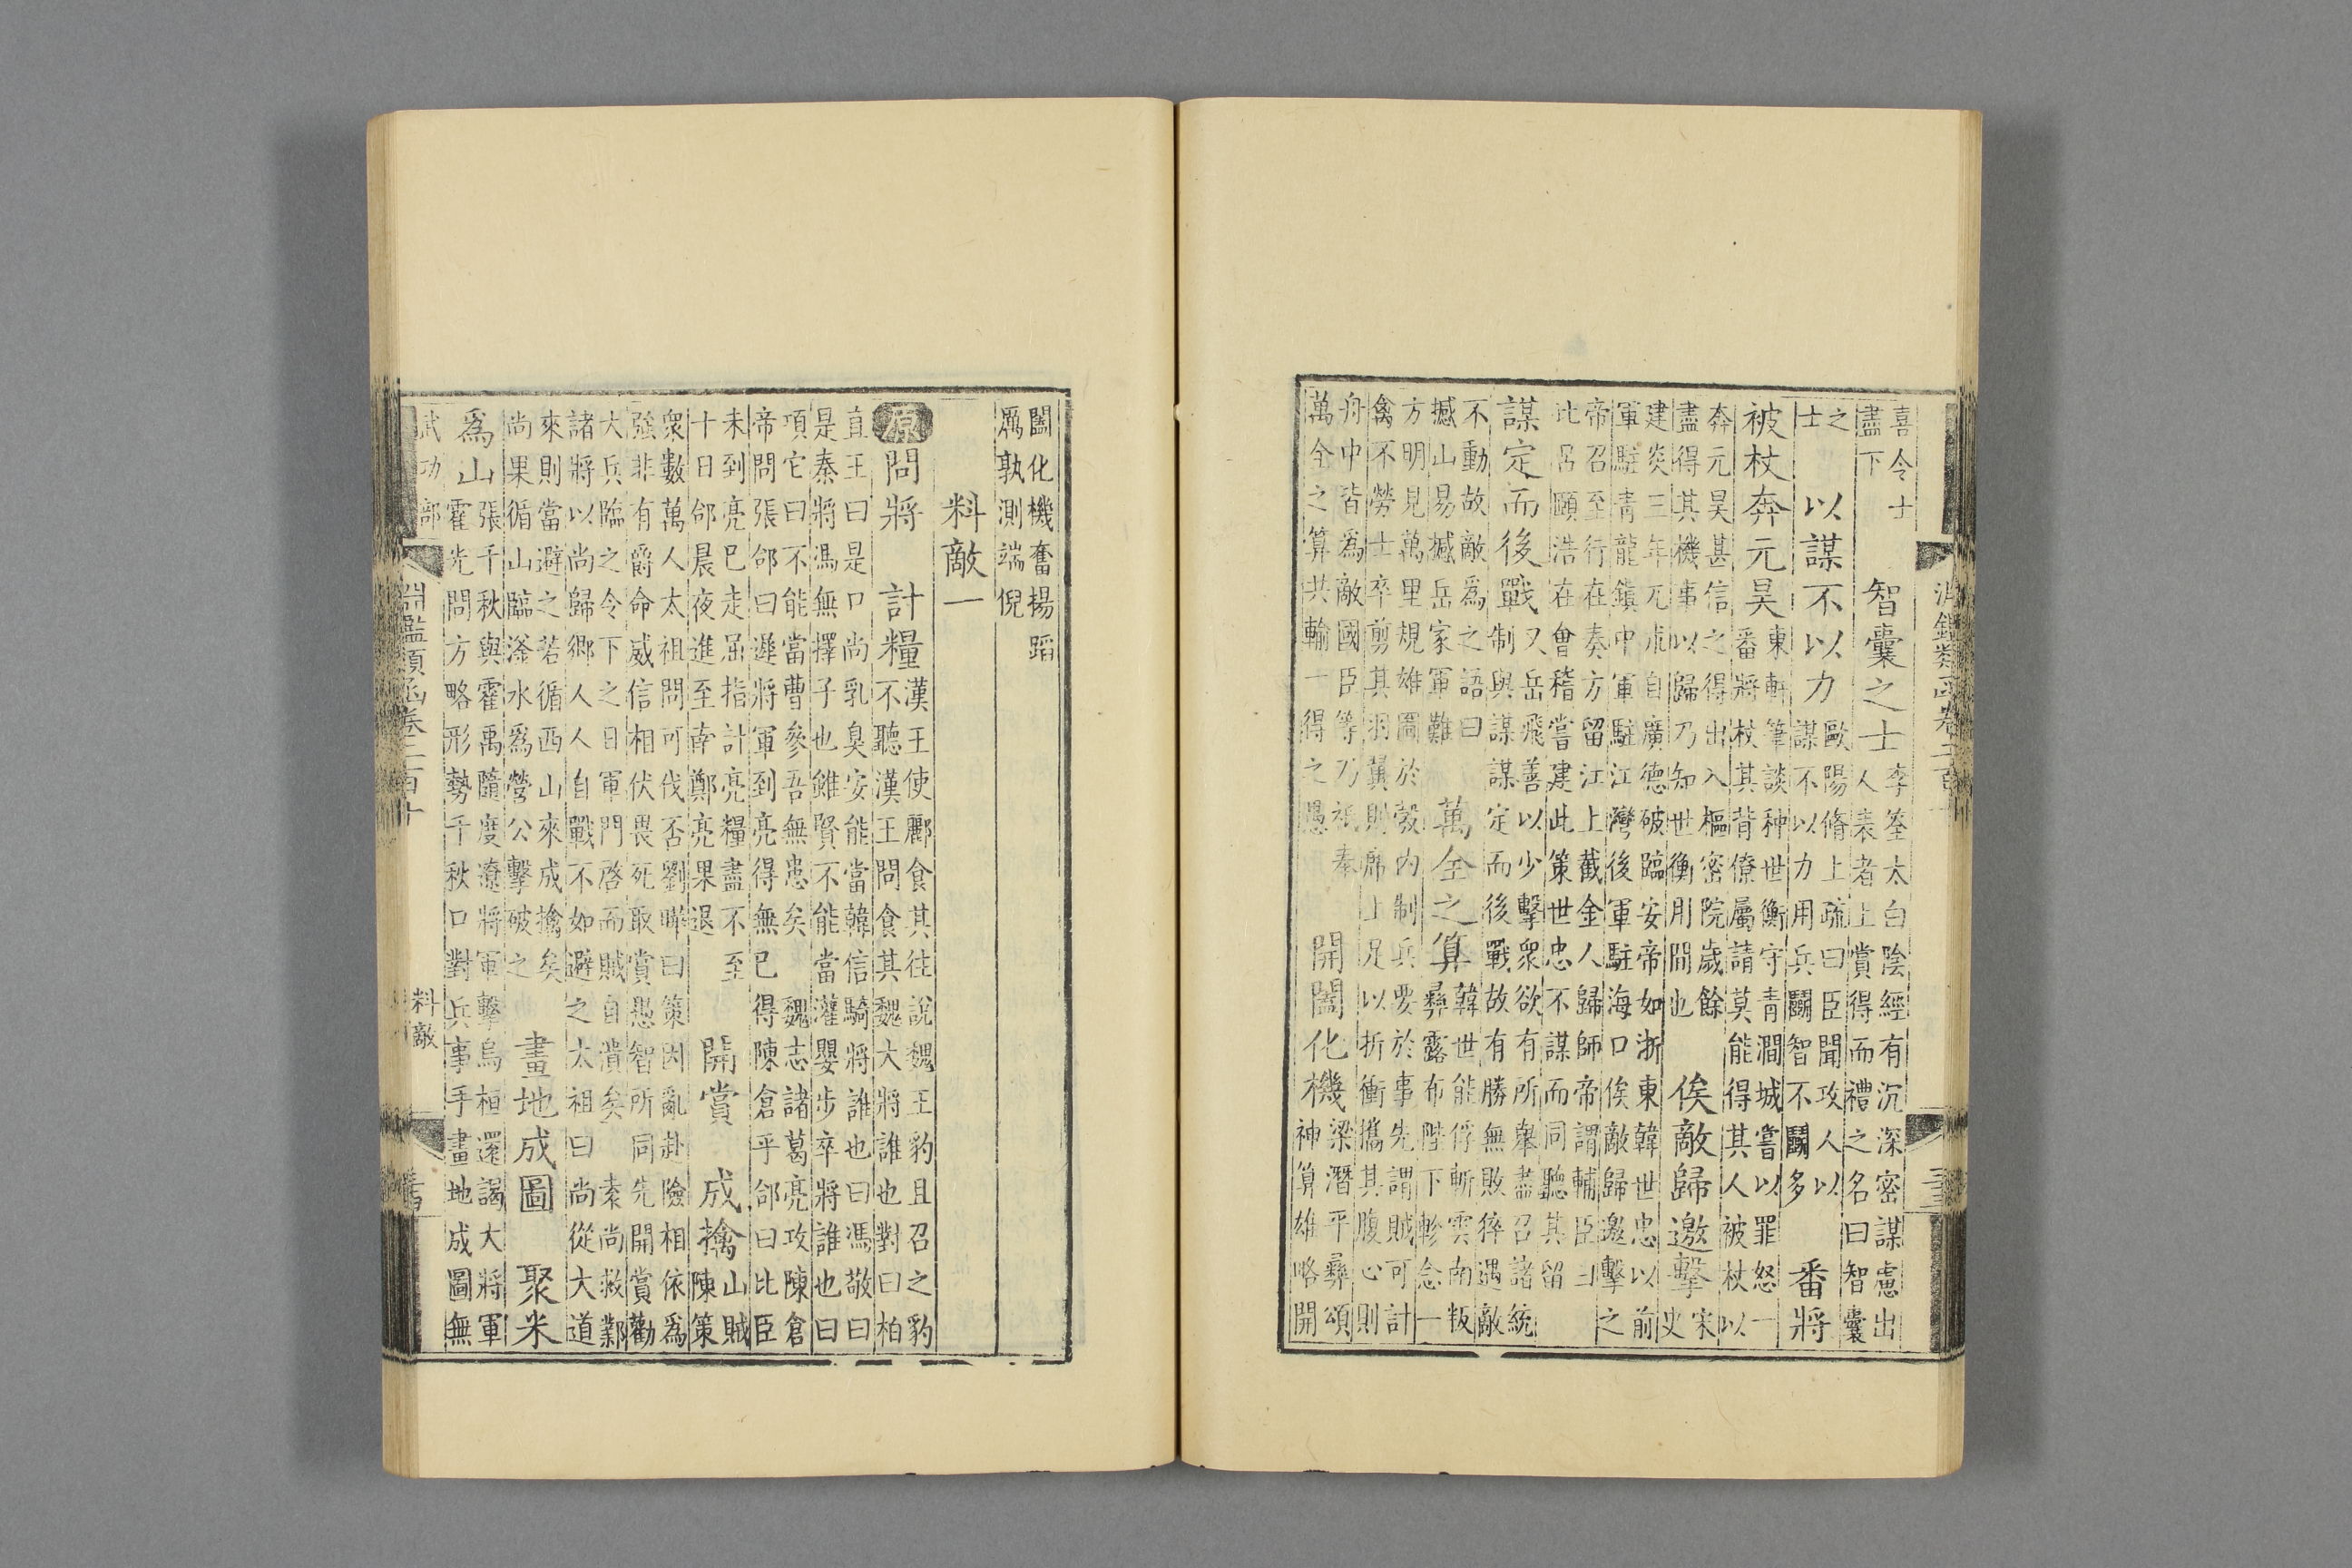 淵鑑類函卷二百十
喜令士
盡下
智囊之士
李筌太白陰經有沉深密謀慮出
人表者上賞得而禮之名曰智囊
之
士
以謀不以力
歐陽脩上疏曰臣聞攻人以
謀不以力用兵鬭智不鬭多
番將
被杖奔元昊
東軒筆談种世衡守青澗城嘗以罪怒一
番將杖其背僚屬請莫能得其人被杖以
奔元昊甚信之得出入樞密院歲餘
盡得其機事以歸乃知世衡用間也
俟敵歸邀擊
宋
史
建炎三年兀朮自廣德破臨安帝如浙東韓世忠以前
軍駐青龍鎮中軍駐江灣後軍駐海口俟敵歸邀擊之
帝召至行在奏方留江上截金人歸師帝謂輔臣曰
比呂頤浩在會稽嘗建此策世忠不謀而同聽其留
謀定而後戰
又岳飛善以少擊衆欲有所舉盡召諸統
制與謀謀定而後戰故有勝無敗猝遇敵
不動故敵爲之語曰
撼山易撼岳家軍難
萬全之算
韓世能俘斬雲南叛
彝露布陛下軫念一
方明見萬里規雄圖於彀内制兵要於事先謂賊可計
禽不勞士卒剪其羽翼則席上足以折衝攜其腹心則
舟中皆爲敵國臣等乃祇奉
萬全之算共輸一得之愚
開闔化機
梁潛平彝頌
神算雄略開
闔化機奮楊蹈
厲孰測端倪
料敵一
原
問將
計糧
漢王使酈食其往說魏王豹且召之豹
不聽漢王問食其魏大將誰也對曰柏
直王曰是口尚乳臭安能當韓信騎將誰也曰馮敬曰
是秦將馮無擇子也雖賢不能當灌嬰步卒將誰也曰
項它曰不能當曹參吾無患矣 魏志諸葛亮攻陳倉
帝問張郃曰遲將軍到亮得無已得陳倉乎郃曰比臣
未到亮已走屈指計亮糧盡不至
十日郃晨夜進至南鄭亮果退
開賞
成擒
山賊
陳策
衆數萬人太祖問可伐否劉曄曰策因亂赴險相依爲
強非有爵命威信相伏畏死取賞愚智所同先開賞勸
大兵臨之令下之日軍門啓而賊自潰矣 袁尚救鄴
諸將以尚歸鄉人人自戰不如避之太祖曰尚從大道
來則當避之若循西山來成擒矣
尚果循山臨滏水爲營公擊破之
畫地成圖
聚米
爲山
張千秋與霍禹隨度遼將軍擊烏桓還謁大將軍
霍光問方略形勢千秋口對兵事手畫地成圖無
武功部
淵鑑類函卷二百十
料敵